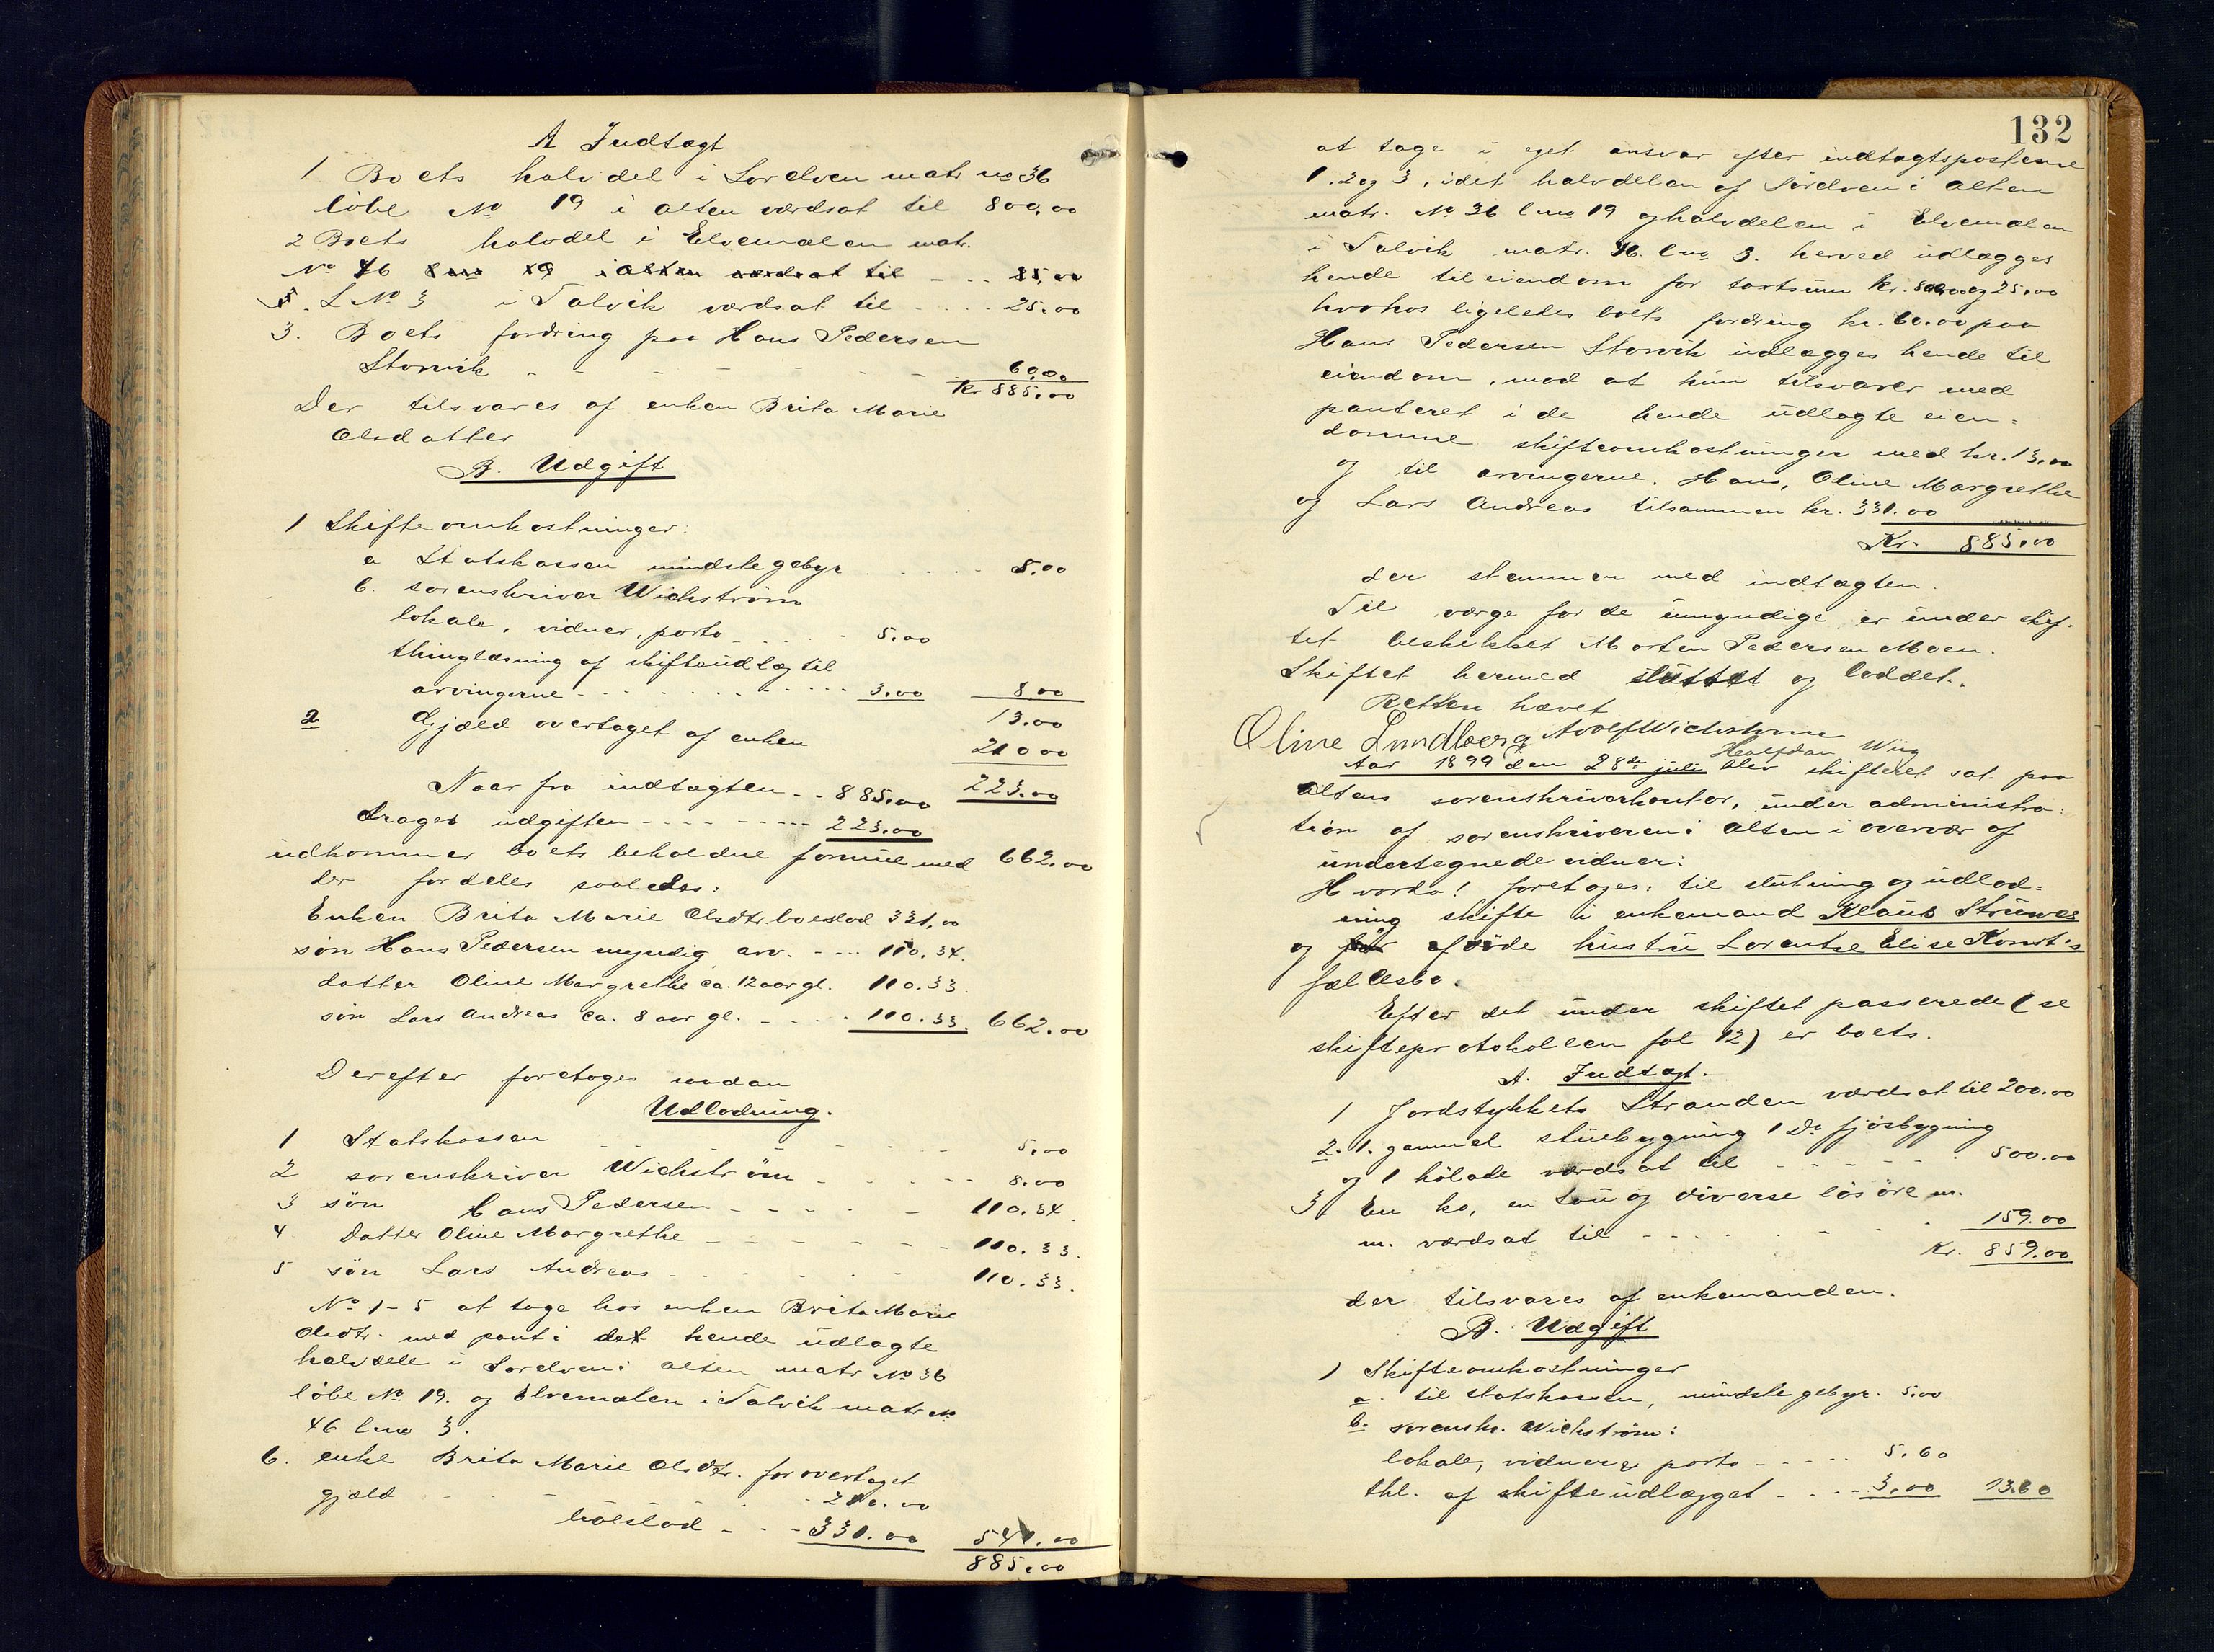 A Indtægt
1 Boets halvdel i Sorelven matr no 36
löbe No 19 i Alten værdsat til 800,00
2 Boets halvdel i Elvemælen matr.
No 46 Lno 19 i Alten værdsat til - . . 25,00
L No 3 i Talvik værdsat til . . . . 25.00
3. Boets fordring paa Hans Pedersen
Storvik - - - - - - - 60,00
Kr 885.00
Der tilsvares af enken Brita Marie
Olsdatter
B. Udgift
1 Skifteomkostninger:
a Statskassen mindstegebyr . . . . . 5.00
b. sorenskriver Wichström
lokale, vidner, porto - . . . . 5.00
thinglæsning af skifteudlæg til
arvingerne - - - . . . . . . 3.00 8 00
13.00
2 Gjæld overtaget af enken 210 00
223.00
Naar fra indtægten - - 885.00
drages udgiften - - - - - - - 223.00
udkommer boets beholdne formue med 662.00
der fordeles saaledes:
Enken Brita Marie Olsdtr. boeslod 331,00
søn Hans Pedersen myndig arv. - - - 110.34.
datter Oline Margrethe ca. 12 aar gl. 110.33.
søn Lars Andreas ca. 8 aar gl. - - - . 110.33. 662.00
Derefter foretoges saadan
Udlodning.
1 Statskassen - - - - - - 5.00
2 sorenskriver Wichström - - - - - 8.00
3 søn Hans Pedersen - - - - - 110.34.
4. Datter Oline Margrethe - - - - - 110.33.
5 søn Lars Andreas - - - - - - 110.33.
No 1-5 at tage hos enken Brita Marie
Olsdtr. med pant i det hende udlagte
halvdele i Sorelven i Alten matr No 36
löbe No. 19. og Elvemælen i Talvik matr No
46 lno 3.
6. enke Brita Marie Olsdtr. for overtaget
gjæld - - - - - 210.00
boeslod - - - 331.00 541.00
885.00
132
at tage i eget ansvar efter indtægtsposterne
1. 2 og 3, idet halvdelen af Sörelven i Alten
matr. No 36 lno 19 og halvdelen i Elvemælen
i Talvik matr. 46. lno 3. herved udlægges
hende til eiendom for taxtsum kr. 800.00 og 25.00
hvorhos ligeledes boets fordring kr. 60.00 paa
Hans Pedersen Storvik udlægges hende til
eiendom, mod at hun tilsvarer med
panteret i de hende udlagte eien=
domme skifteomkostninger med kr. 13.00
og til arvingerne. Hans, Oline Margrethe
og Lars Andreas tilsammen kr. 331.00
Kr. 885.00
der stemmer med indtægten.
Til værge for de umyndige er under skif-
tet beskikket Morten Pedersen Moen.
Skiftet hermed sluttet og loddet.
Retten hævet
Oline Lundberg Adolf Wichstrøm
Halfdan Wiig
Aar 1899 den 28de juli blev skifteret sat paa
Altens sorenskriverkontor, under administra=
tion af sorenskriveren i Alten i overvær af
undertegnede vidner:
Hvorda! foretoges: til slutning og udlod=
ning skifte i enkemand Klaus Struwes
og afdöde hustru Lorentze Elise Konst's
fællesbo.
Efter det under skiftet passerede (se
skifteprotokollen fol 12) er boets.
A. Indtægt.
1 Jordstykkets Stranden værdsat til 200.00
2. 1. gammel stuebygning 1 Do fjösbygning
og 1 hölade værdsat til - - - - - . 500.00
3. En ko, en sau og diverse lösöre m.
m. værdsat til - - - . . - . 159.00
Kr. 859.00
der tilsvares af enkemanden.
B. Udgift
1 Skifteomkostninger
a. til statskassen, mindstegebyr. 5.00
b. sorenskr. Wichström:
lokale, vidner & porto - - - - - 5.60
thl. af skifteudlægget - - - - 3.00 13.60